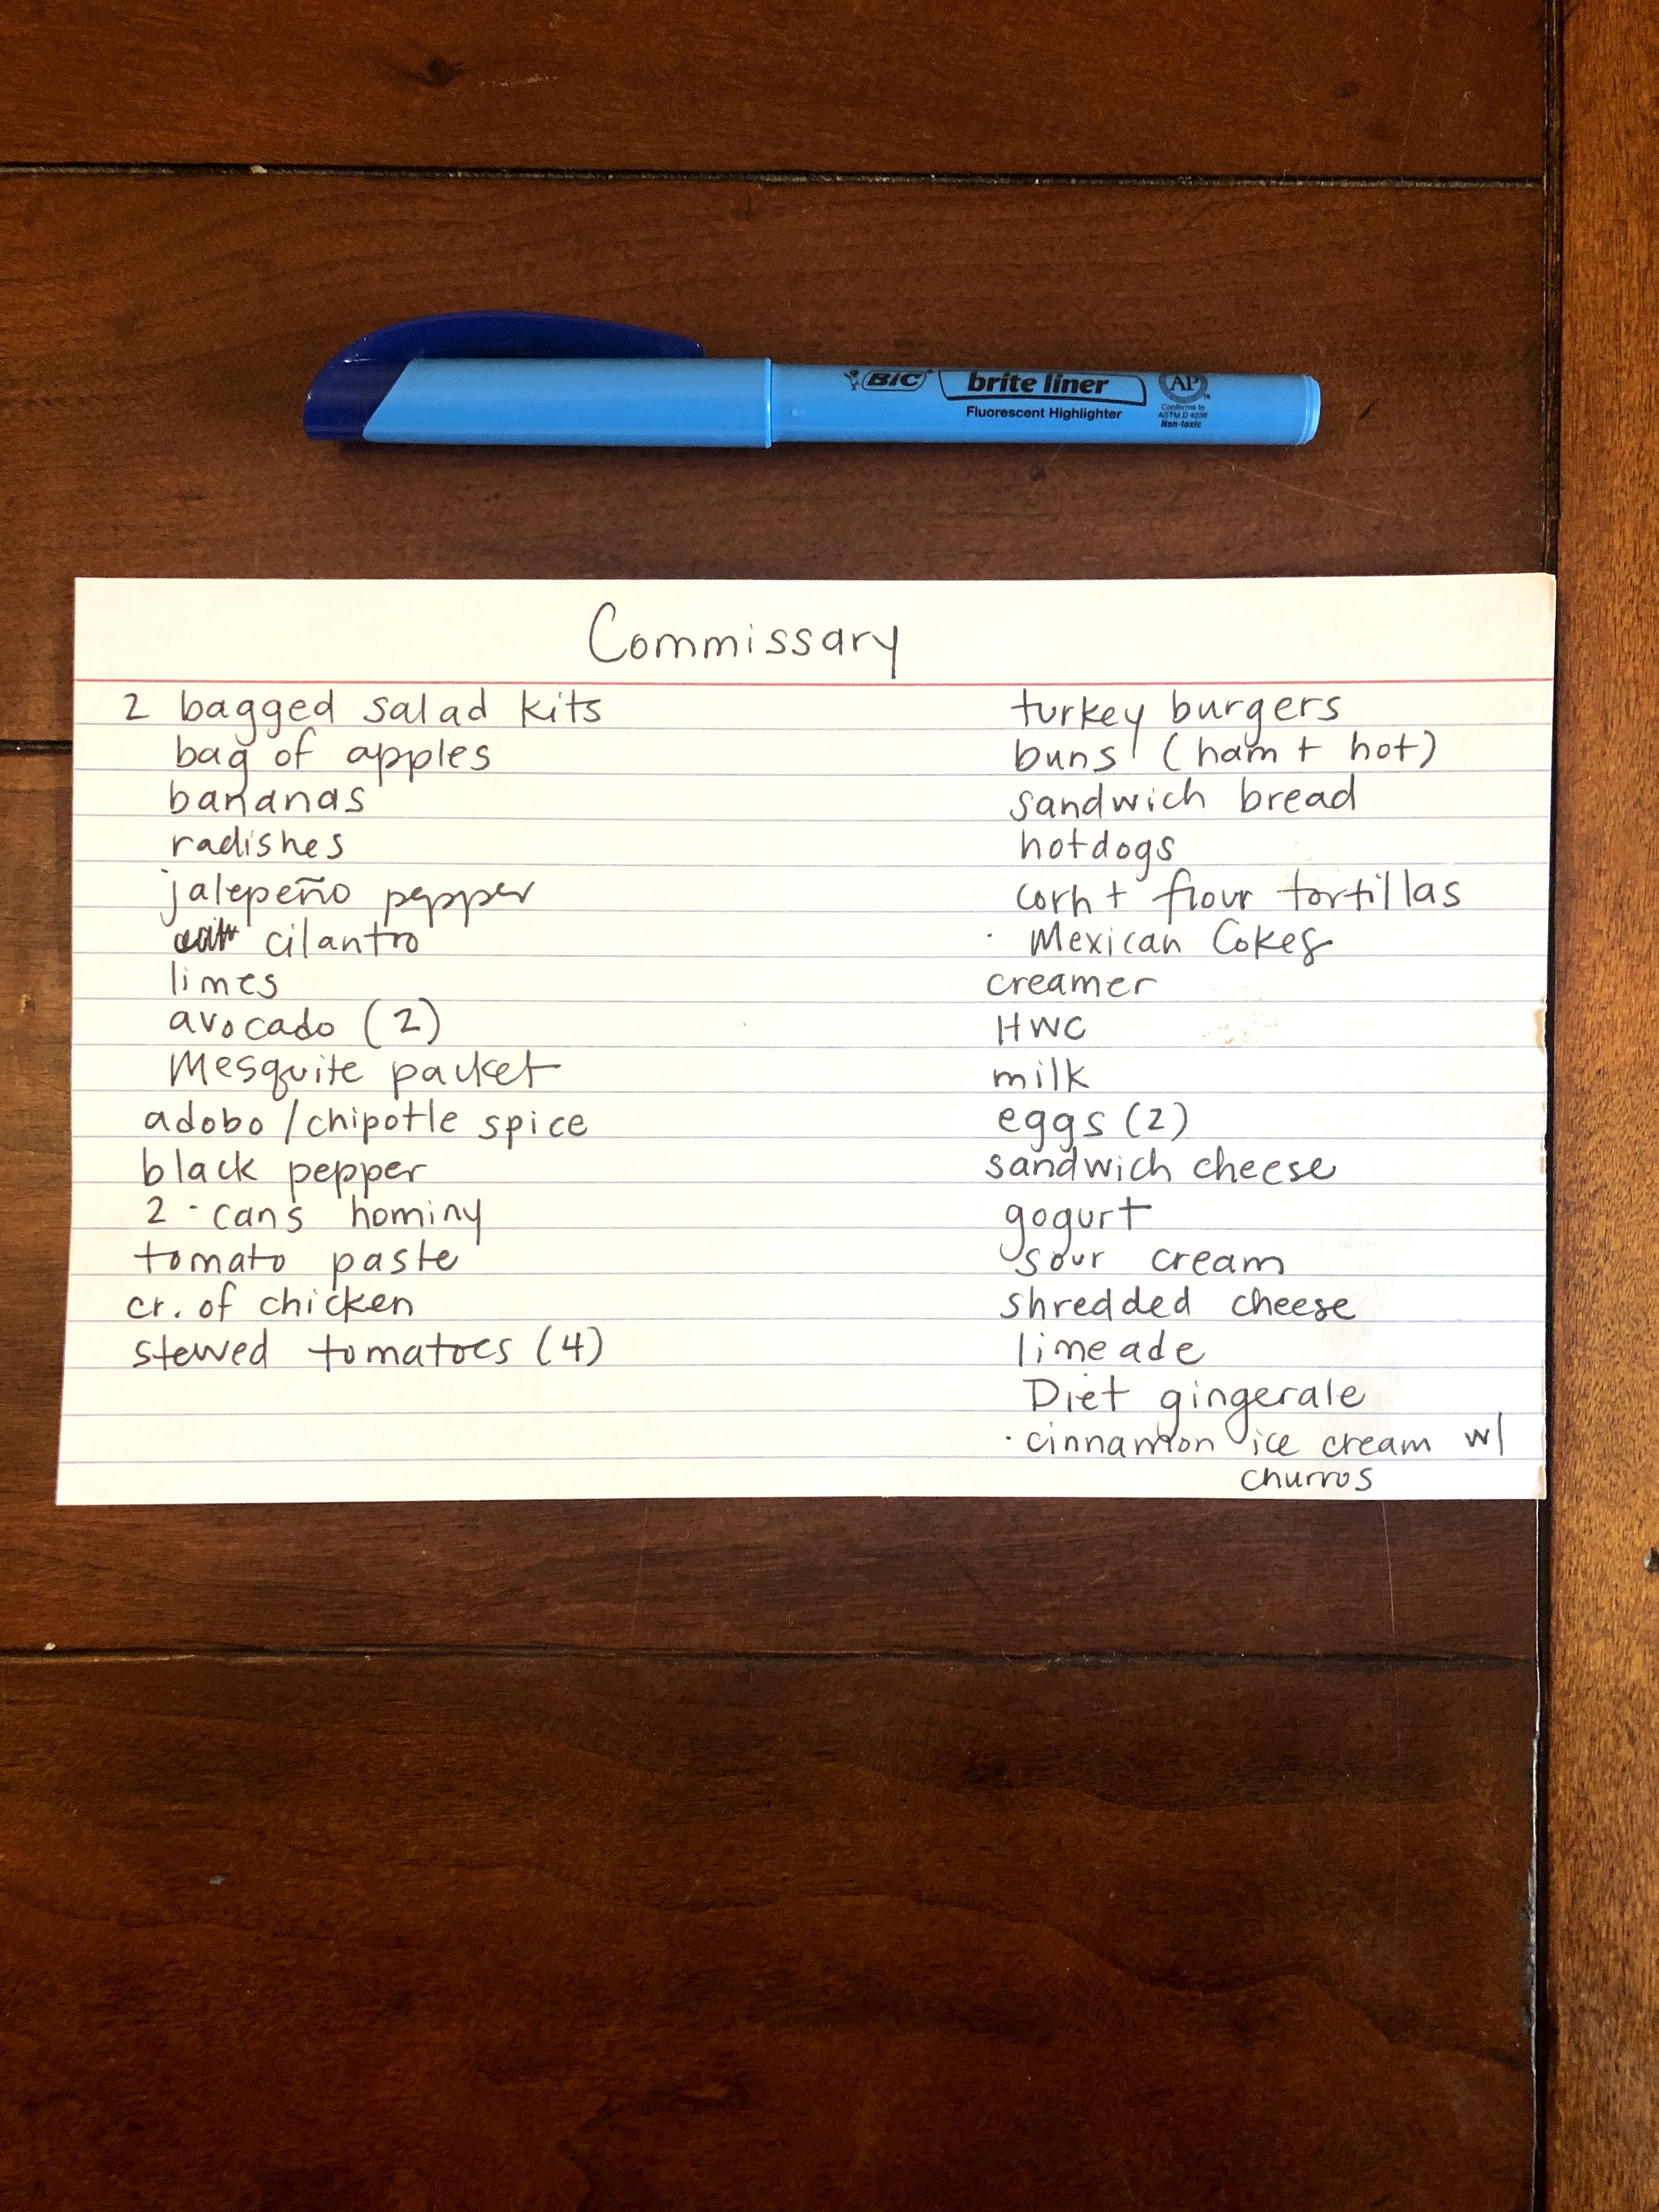 BIC brite liner AP
Fluorescent Highlighter
Conforms to
ASTM D 4236
Non-toxic
Commissary
2 bagged salad kits
bag of apples
bananas
radishes
jalepeño pepper
cilantro
limes
avocado (2)
Mesquite packet
adobo/chipotle spice
black pepper
2 - cans hominy
tomato paste
cr. of chicken
stewed tomatoes (4)
turkey burgers
buns (ham + hot)
sandwich bread
hotdogs
corn + flour tortillas
· Mexican Cokes
creamer
HWC
milk
eggs (2)
sandwich cheese
gogurt
sour cream
shredded cheese
limeade
Diet gingerale
· cinnamon ice cream w/
churros